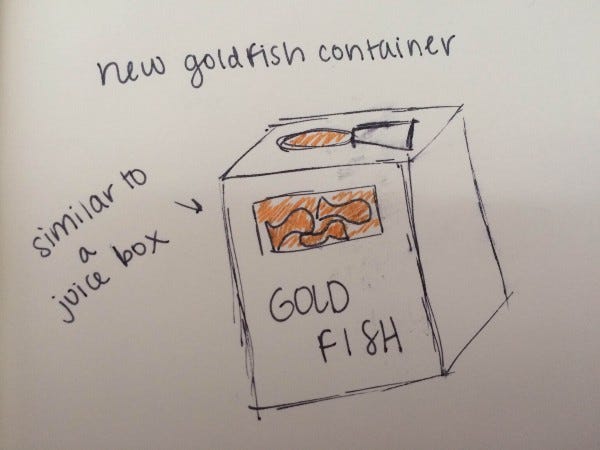 new goldfish container
similar to
a
juice box
GOLD
FISH